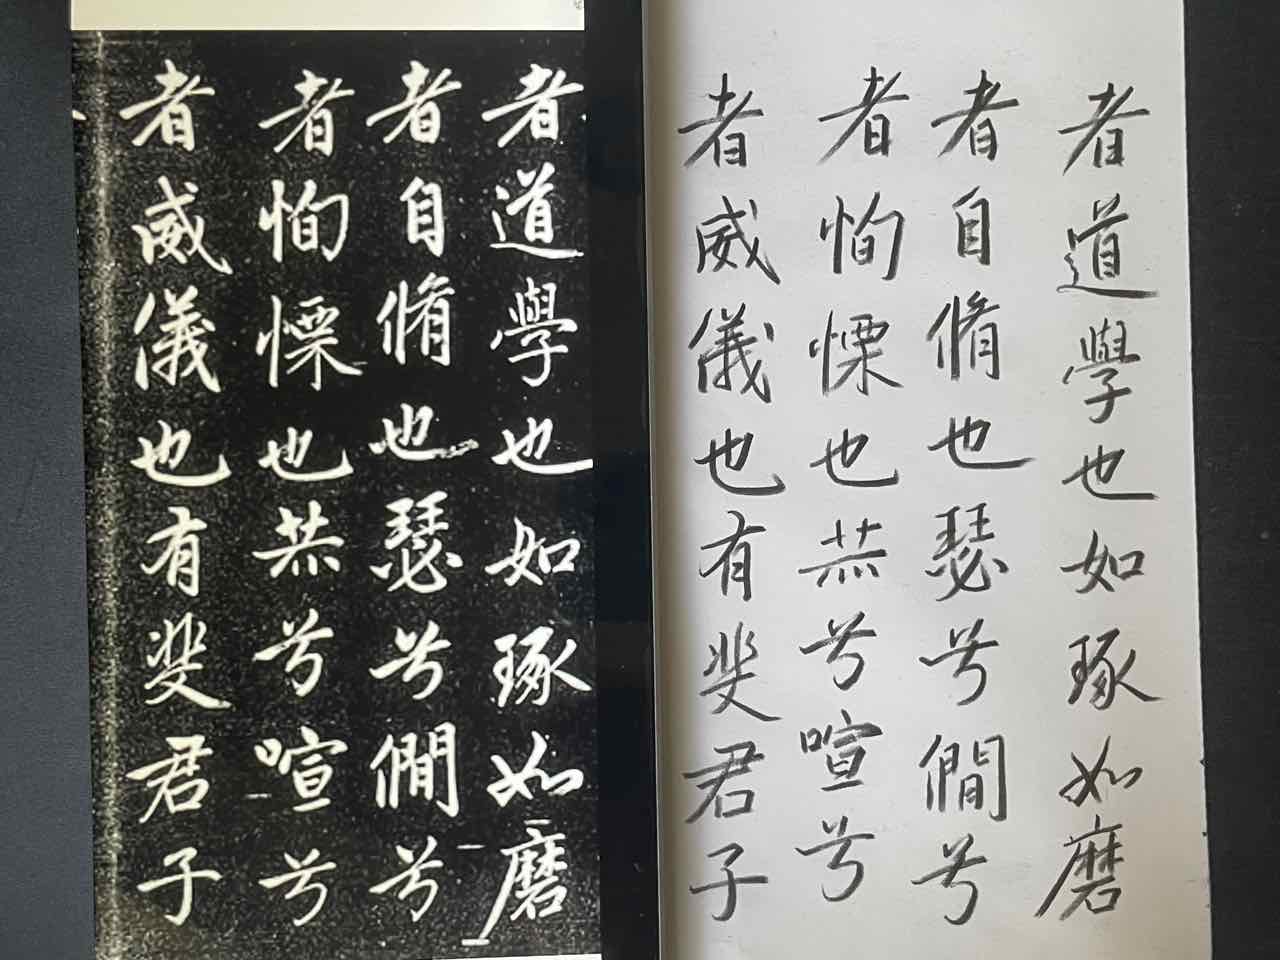 者道學也如琢如磨
者自脩也瑟兮僩兮
者恂慄也赫兮喧兮
者威儀也有斐君子
者道學也如琢如磨
者自脩也瑟兮僩兮
者恂慄也赫兮喧兮
者威儀也有斐君子